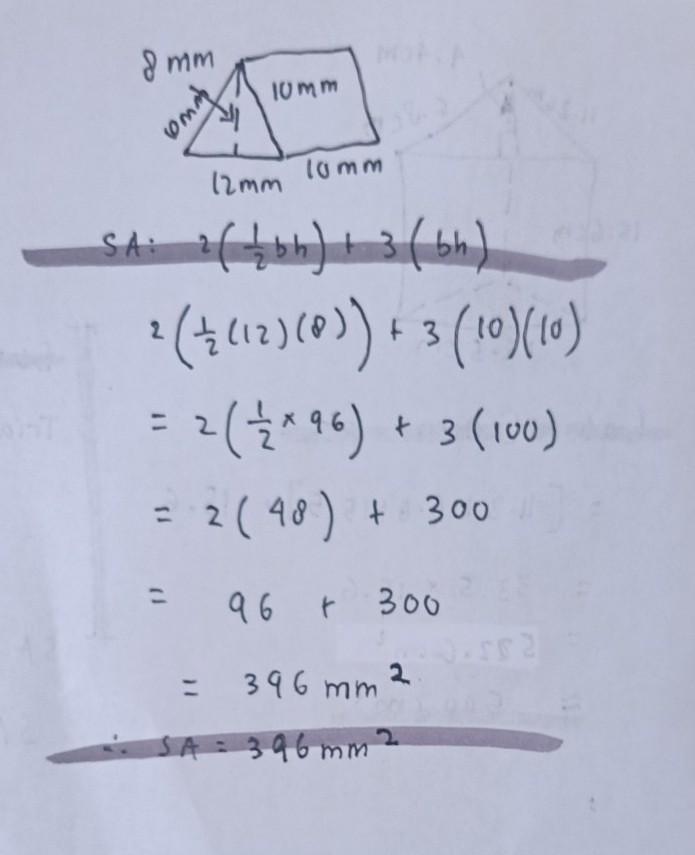 8 mm
10mm
12mm
10mm
SA: 2(½bh) + 3(bh)
2(½(12)(8)) + 3(10)(10)
= 2(½ × 96) + 3(100)
= 2(48) + 300
= 96 + 300
= 396 mm²
∴ SA = 396 mm²